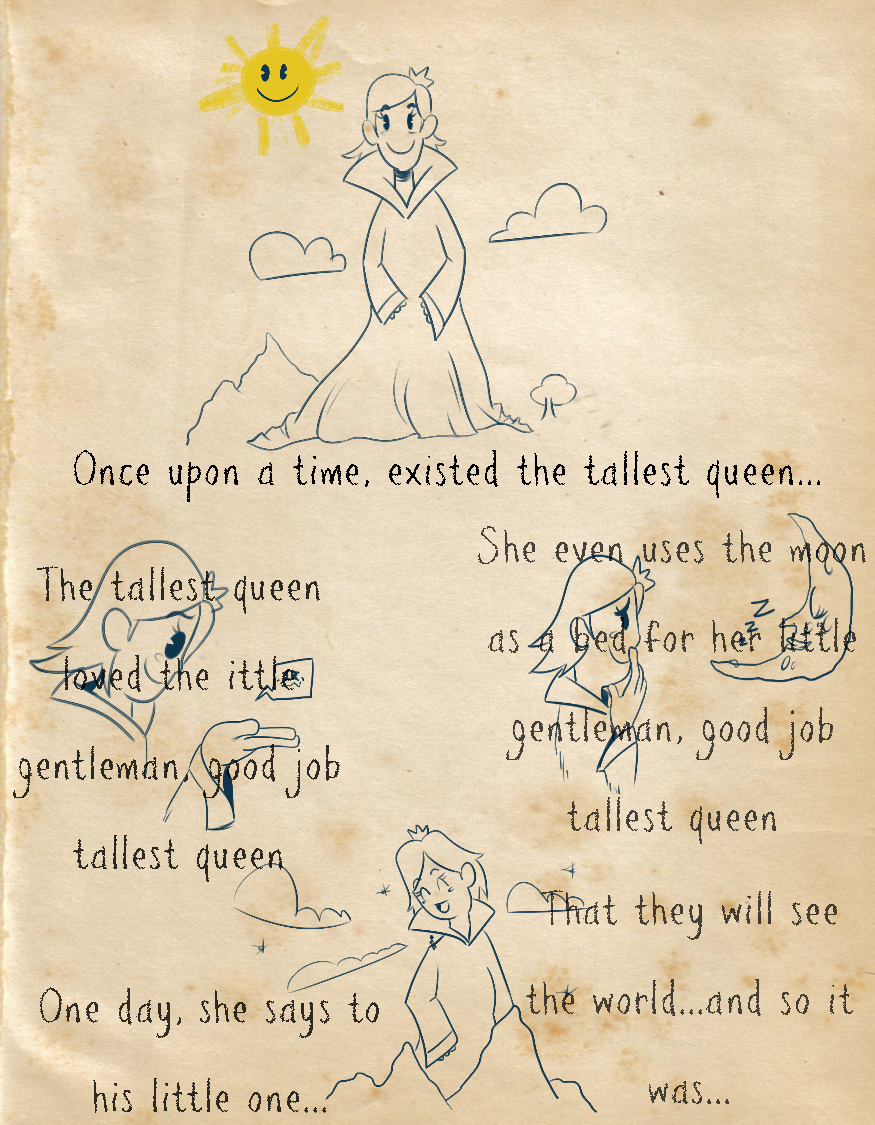 Once upon a time, existed the tallest queen...
The tallest queen
loved the ittle
gentleman, good job
tallest queen
She even uses the moon
as a bed for her little
gentleman, good job
tallest queen
z z z
One day, she says to
his little one...
That they will see
the world...and so it
was...